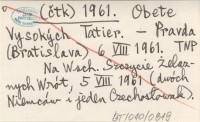 (čtk) 1961. Obete
Vysokých Tatier. – Pravda
(Bratislava) 6 VIII 1961. TNP
Na Wsch. Szczycie Żelaz-
nych Wrót, 5 VIII 1961 (dwóch
Niemców i jeden Czechosłowak).
BT1010/0819